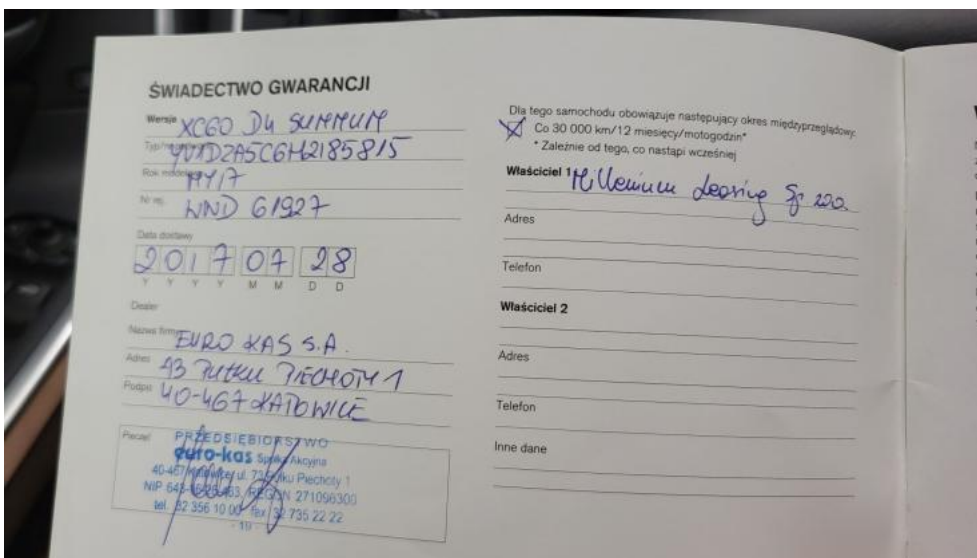 ŚWIADECTWO GWARANCJI
Wersja XC60 D4 SUMMUM
YV1DZA5C6H2185815
Rok modelowy MY17
Nr rej. WND 61927
Data dostawy
2017 07 28
Y Y Y Y M M D D
Dealer
Nazwa firmy EURO KAS S.A.
Adres 73 PUŁKU PIECHOTY 1
Podpis 40-467 KATOWICE
Pieczęć
PRZEDSIĘBIORSTWO
euro-kas Spółka Akcyjna
40-467 Katowice, ul. 73 Pułku Piechoty 1
REGON 271096300
tel. 32 356 10 00 fax 32 735 22 22
- 19 -
Dla tego samochodu obowiązuje następujący okres międzyprzeglądowy:
Co 30 000 km/12 miesięcy/motogodzin*
* Zależnie od tego, co nastąpi wcześniej
Właściciel 1 Millenium Leasing Sp. zoo.
Adres
Telefon
Właściciel 2
Adres
Telefon
Inne dane